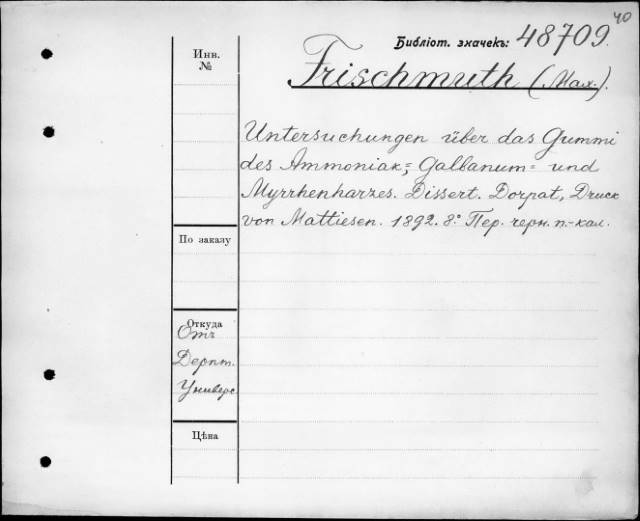 40
Библіот. значекъ: 48709.
Инв.
№
Frischmuth (Max).
Untersuchungen über das Gummi
des Ammoniak-, Galbanum- und
Myrrhenharzes. Dissert. Dorpat, Druck
von Mattiesen. 1892. 8.° Пер. черн. п.-кал.
По заказу
Откуда
Отъ
Дерпт.
Универс
Цѣна